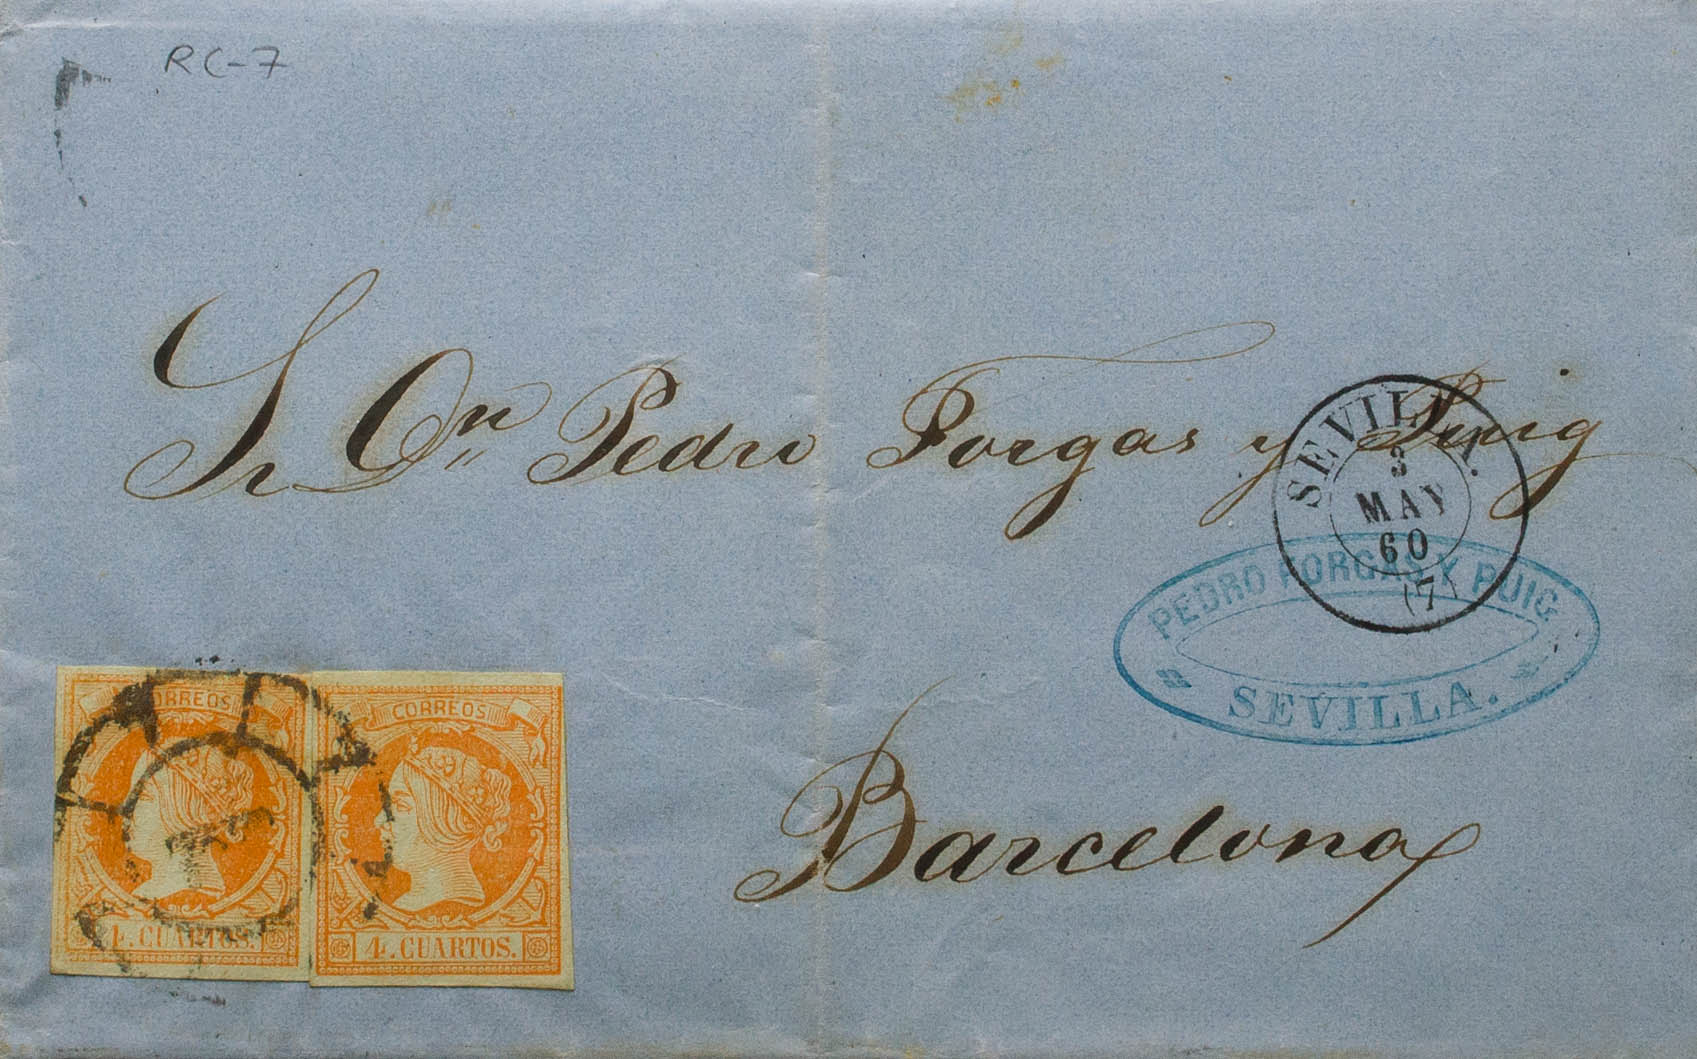 RC-7
Sr Dn Pedro Forgas y Puig
SEVILLA.
3
MAY
60
(7)
PEDRO FORGAS Y PUIG
SEVILLA.
CORREOS
4. CUARTOS.
CORREOS
4. CUARTOS.
Barcelona